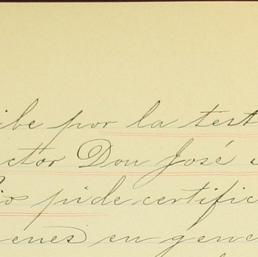 ibe por la test
ctor Don José
pide certific
enes en gene